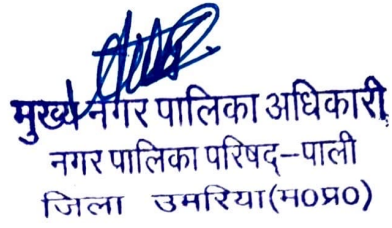 मुख्य नगर पालिका अधिकारी
नगर पालिका परिषद-पाली
जिला उमरिया(म0प्र0)